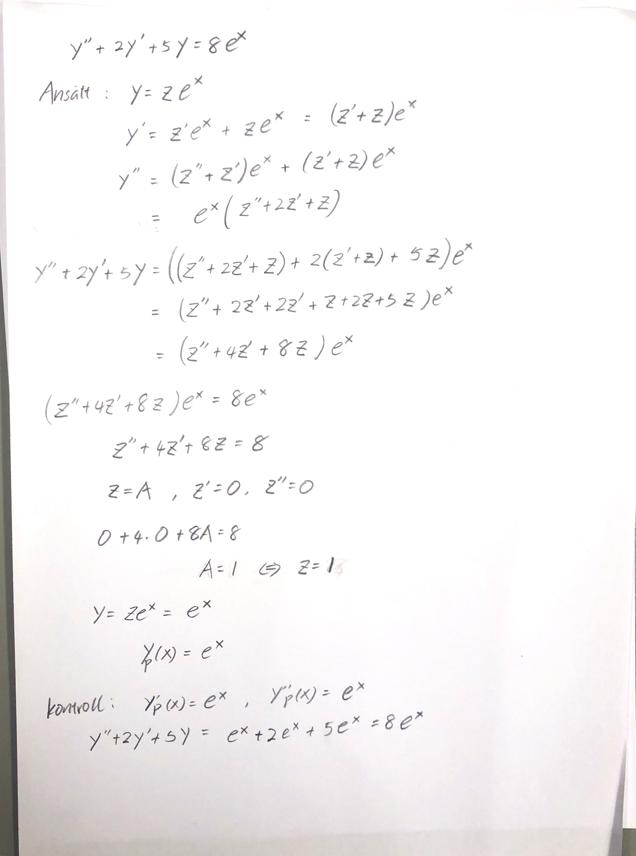 y'' + 2y' + 5y = 8e^x
Ansätt : y = ze^x
y' = z'e^x + ze^x = (z'+z)e^x
y'' = (z''+z')e^x + (z'+z)e^x
= e^x(z''+2z'+z)
y''+2y'+5y = ((z''+2z'+z)+2(z'+z)+5z)e^x
= (z''+2z'+2z'+z+2z+5z)e^x
= (z''+4z'+8z)e^x
(z''+4z'+8z)e^x = 8e^x
z''+4z'+8z = 8
z=A , z'=0, z''=0
0+4·0+8A=8
A=1 ⇔ z=1
y= ze^x = e^x
y_p(x) = e^x
kontroll: y'_p(x)=e^x , y''_p(x)=e^x
y''+2y'+5y = e^x+2e^x+5e^x = 8e^x